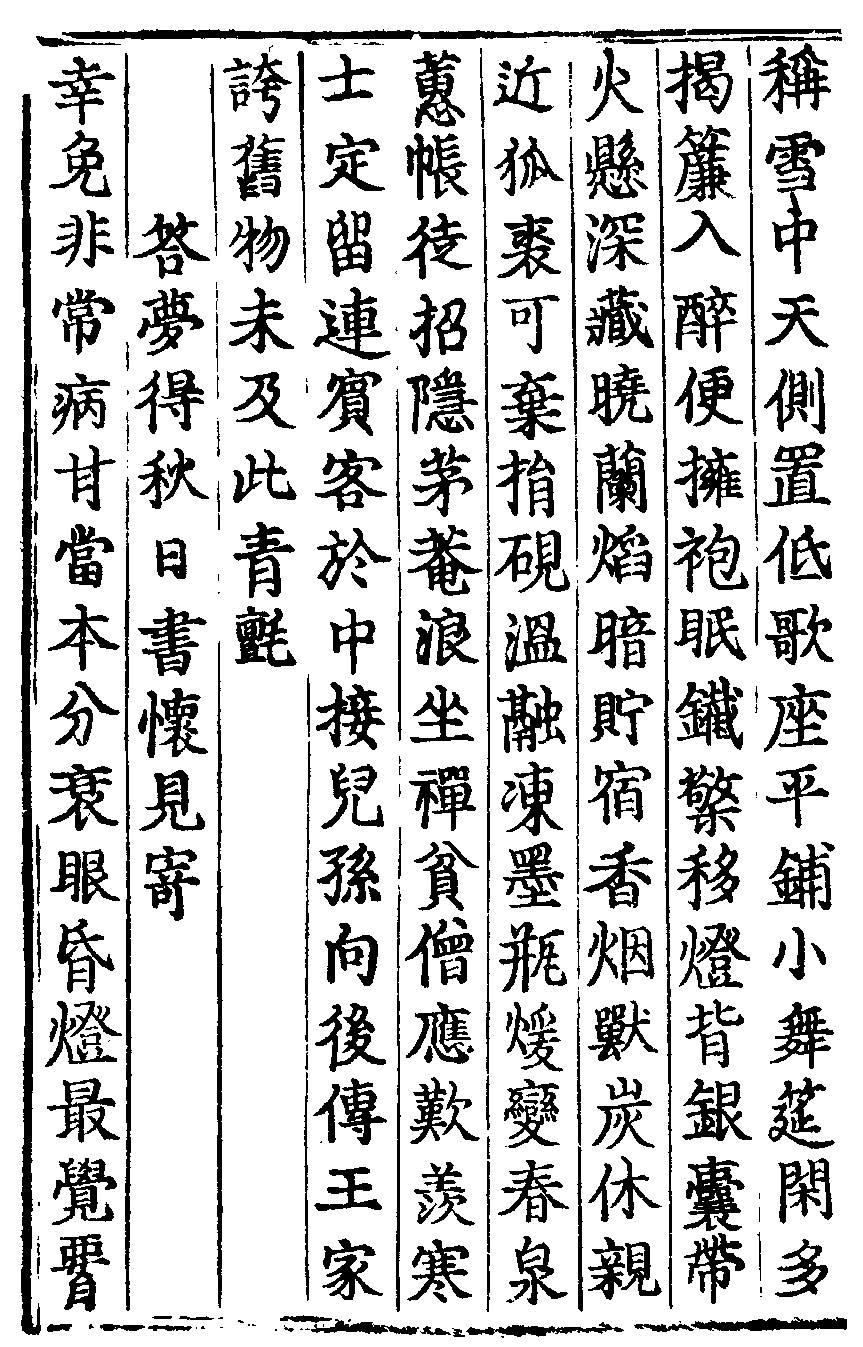 稱雪中天側置低歌座平鋪小舞筵閑多
揭簾入醉便擁袍眠鐵檠移燈背銀囊帶
火懸深藏曉蘭焰暗貯宿香烟獸炭休親
近狐裘可棄捐硯溫融凍墨瓶煖變春泉
蕙帳徒招隱茅菴浪坐禪貧僧應歎羡寒
士定留連賓客於中接兒孫向後傳王家
誇舊物未及此青氈
答夢得秋日書懷見寄
幸免非常病甘當本分衰眼昏燈最覺腰